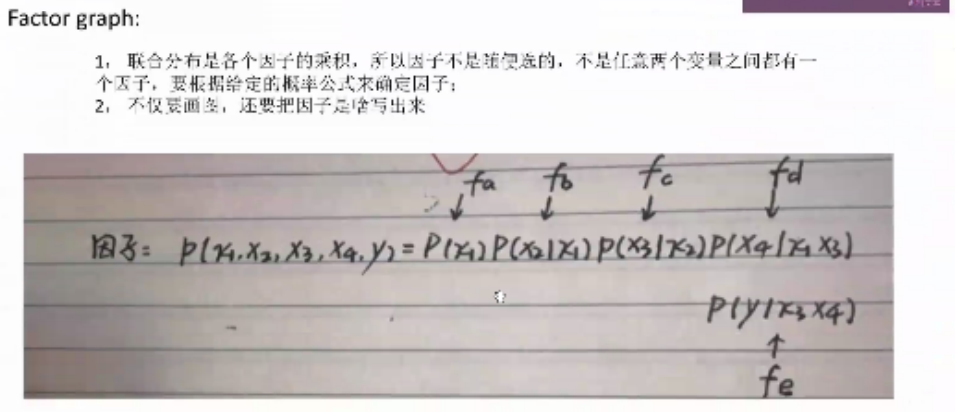 Factor graph:
1， 联合分布是各个因子的乘积，所以因子不是随便选的，不是任意两个变量之间都有一
个因子，要根据给定的概率公式来确定因子；
2， 不仅要画图，还要把因子是啥写出来
fa fb fc fd
因子: P(x1,x2,x3,x4,y)=P(x1)P(x2|x1)P(x3|x2)P(x4|x1x3)
P(y|x3x4)
fe